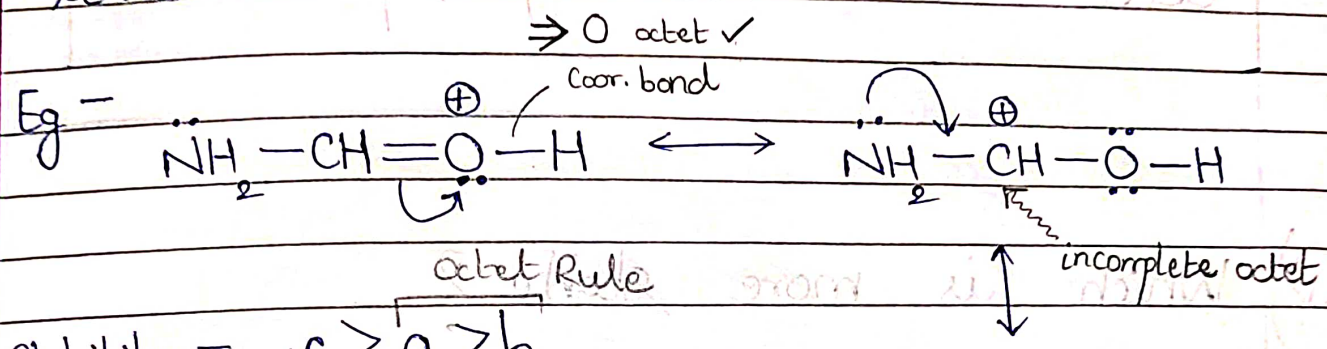 ⇒ O octet ✓
Coor. bond
Eg – N̈H₂ – CH = O⊕ – H ⟷ N̈H₂ – CH⊕ – Ö – H
incomplete octet
Octet Rule
c > a > b